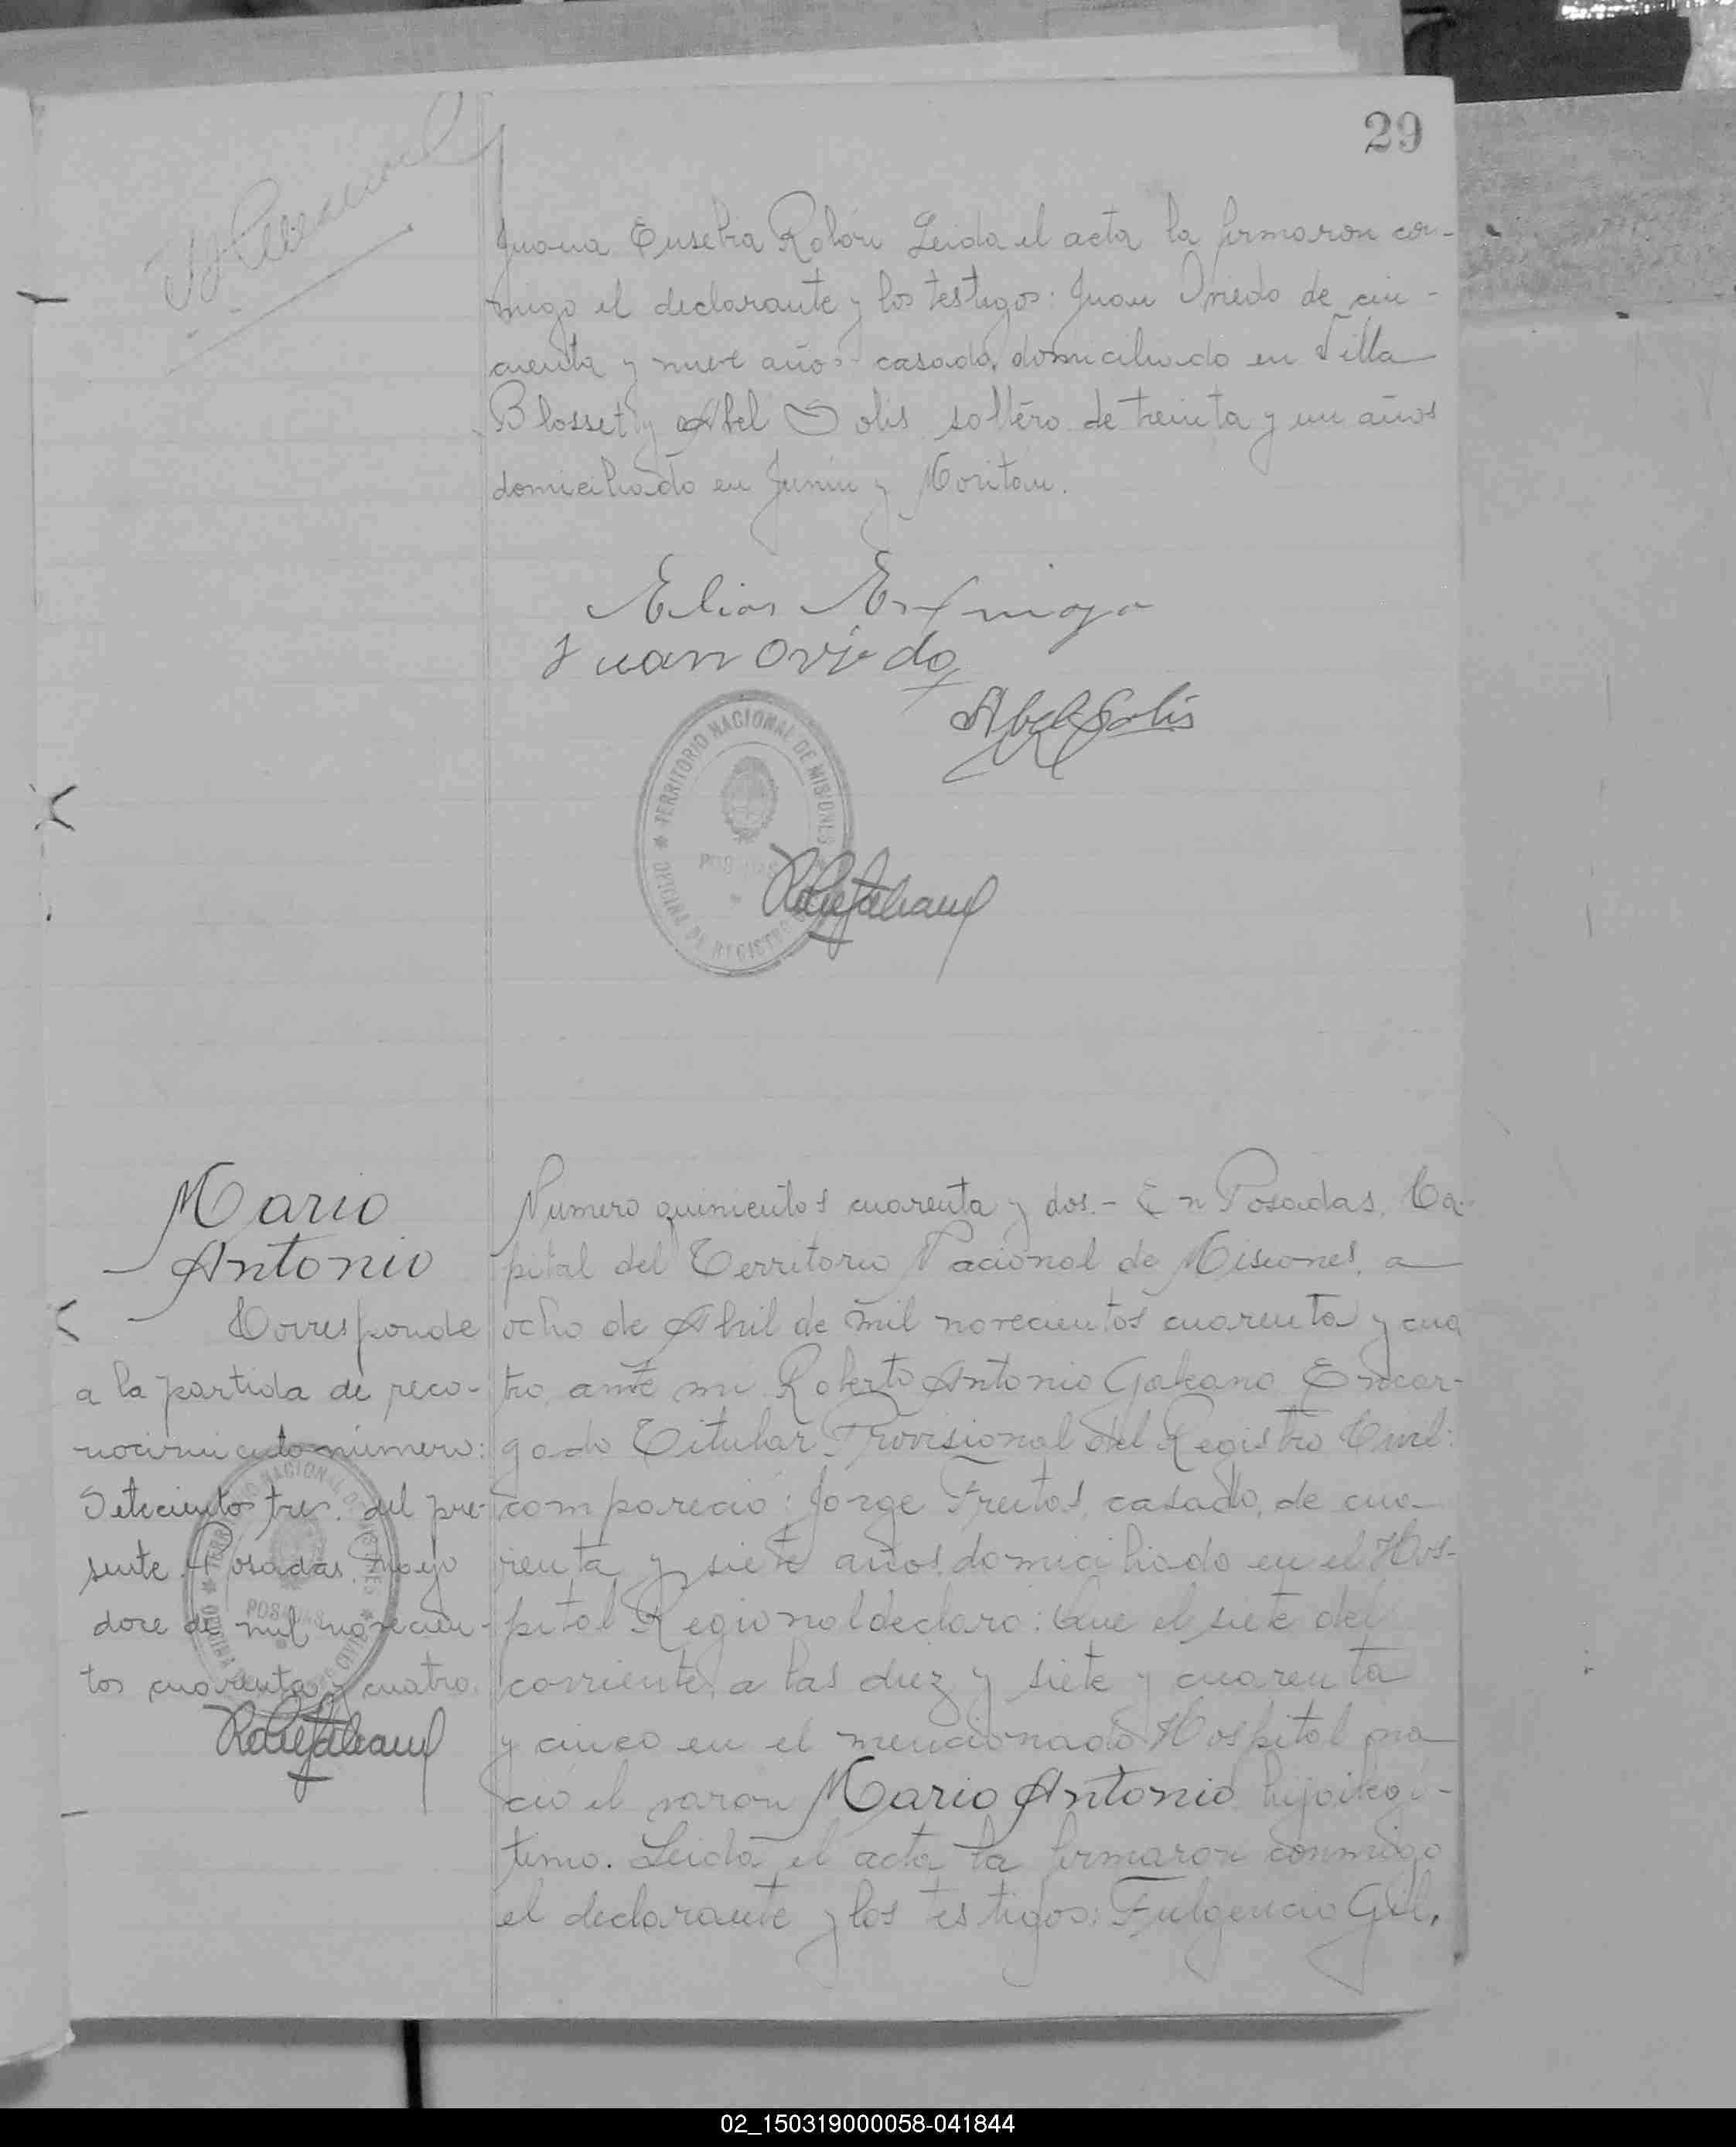 29
Juana Eusebia Robón Leida el acta la firmaron con-
migo el declarante y los testigos: Juan Oviedo de cin-
cuenta y nueve años casado, domiciliado en Villa
Blosset y Abel Solis soltero de treinta y un años
domiciliado en Junin y
Elias
Juan Oviedo
Abel Solis
TERRITORIO NACIONAL DE MISIONES
POSADAS
OFICINA DE REGISTRO
Mario
Antonio
Corresponde
a la partida de reco-
nocimiento número:
Setecientos tres. del pre-
sente. Posadas, mayo
doce de mil novecien-
tos cuarenta y cuatro.
Numero quinientos cuarenta y dos.- En Posadas, Ca-
pital del Territorio Nacional de Misiones, a
ocho de Abril de mil novecientos cuarenta y cua
tro, ante mi Roberto Antonio Galeano Encar-
gado Titular Provisional del Registro Civil:
comparecio: Jorge Freitos, casado, de cua-
renta y siete años, domiciliado en el Hos-
pital Regional declaro: Que el siete del
corriente, a las diez y siete y cuarenta
y cinco en el mencionado Hospital na
ció el varon Mario Antonio hijo ilegi-
timo. Leida el acta la firmaron conmigo
el declarante y los testigos: Fulgencio Gil,
02_150319000058-041844